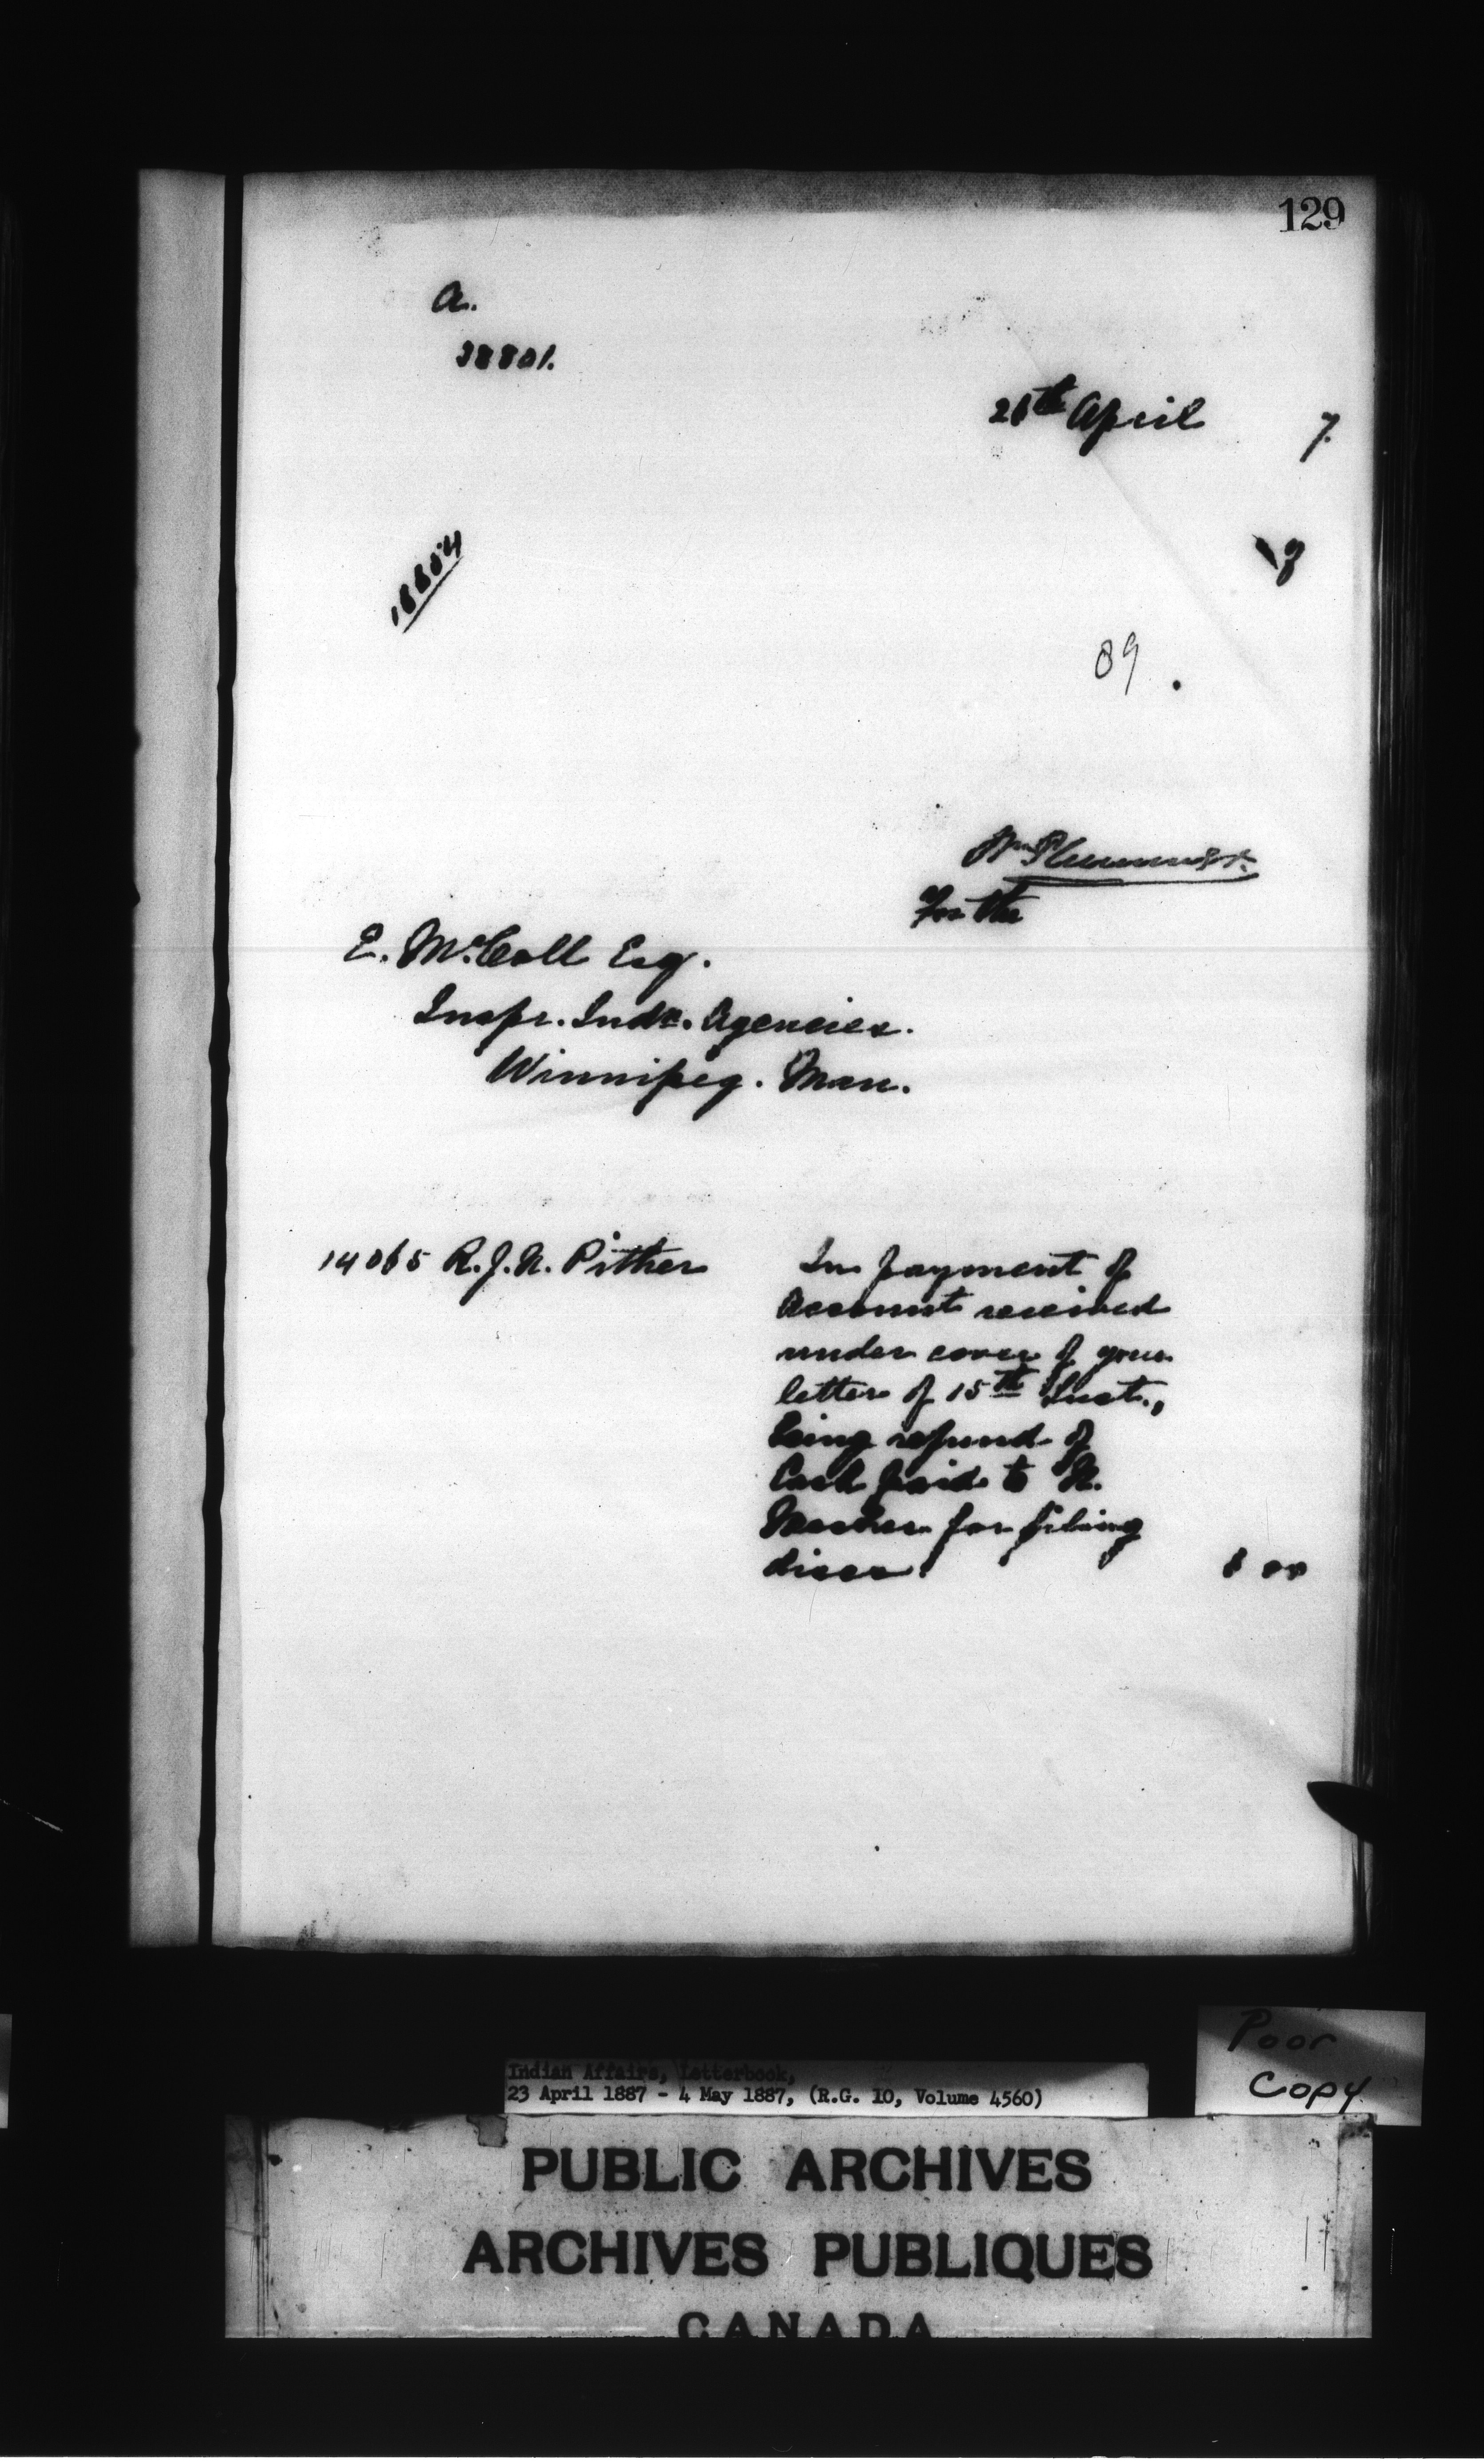 129
a.
38801.
26th April 7.
16654
89.
Wm Plummer
For the
E. McColl Esq.
Inspr. Indn. Agencies.
Winnipeg. Man.
14065 R.J.N. Pither In payment of
Account received
under cover of your
letter of 15th Inst.,
being refund of
Cash paid to N.
for
Poor
Copy
Indian Affairs, Letterbook,
23 April 1887 - 4 May 1887, (R.G. 10, Volume 4560)
PUBLIC ARCHIVES
ARCHIVES PUBLIQUES
CANADA